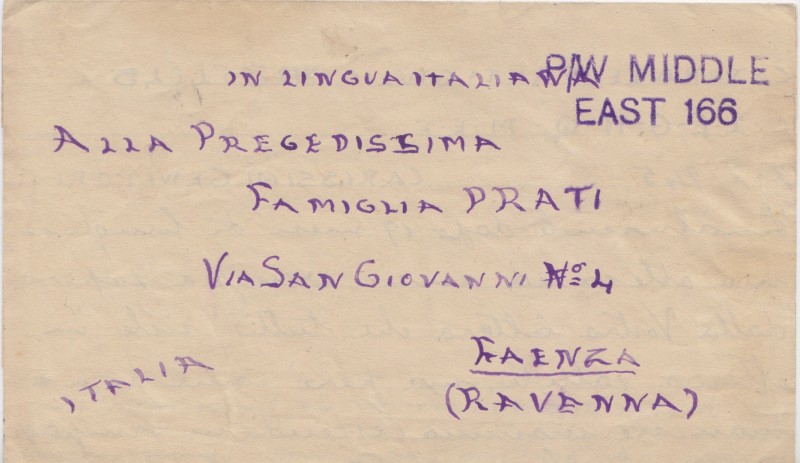 IN LINGUA ITALIANA
P/W MIDDLE
EAST 166
ALLA PREGEDISSIMA
FAMIGLIA PRATI
VIA SAN GIOVANNI Nº 4
FAENZA
ITALIA
(RAVENNA)